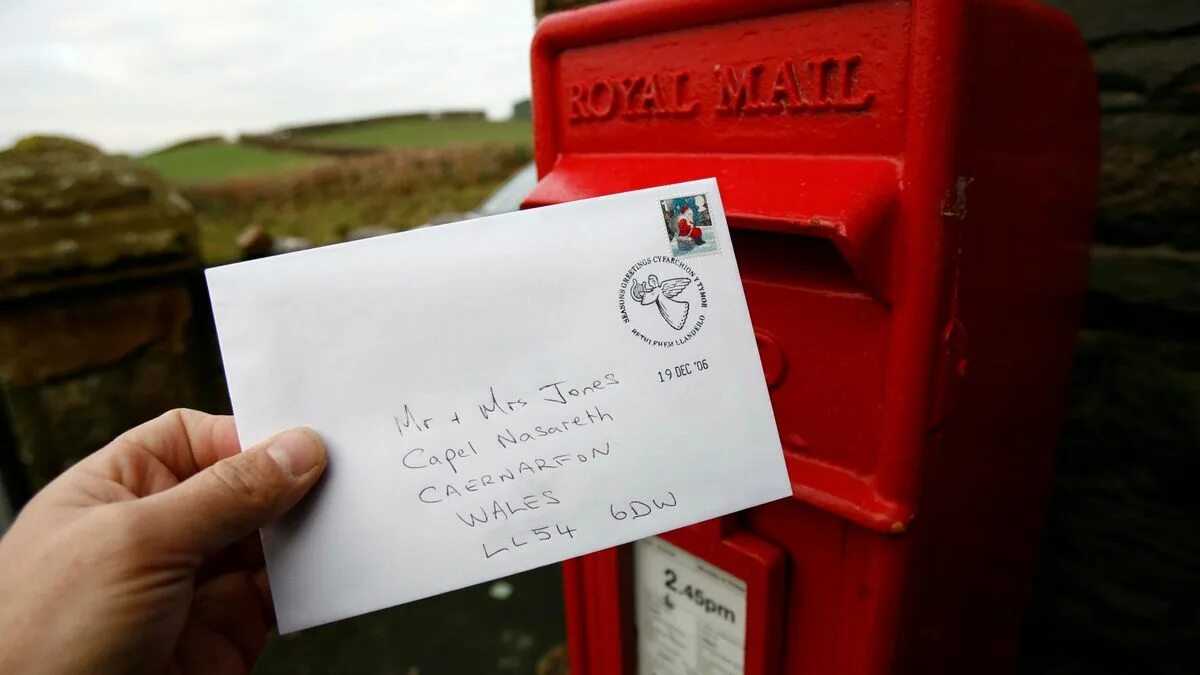 ROYAL MAIL
SEASONS GREETINGS CYFARCHION Y TYMOR
BETHLEHEM LLANDEILO
19 DEC '06
Mr + Mrs Jones
Capel Nasareth
CAERNARFON
WALES
LL54 6DW
2.45pm